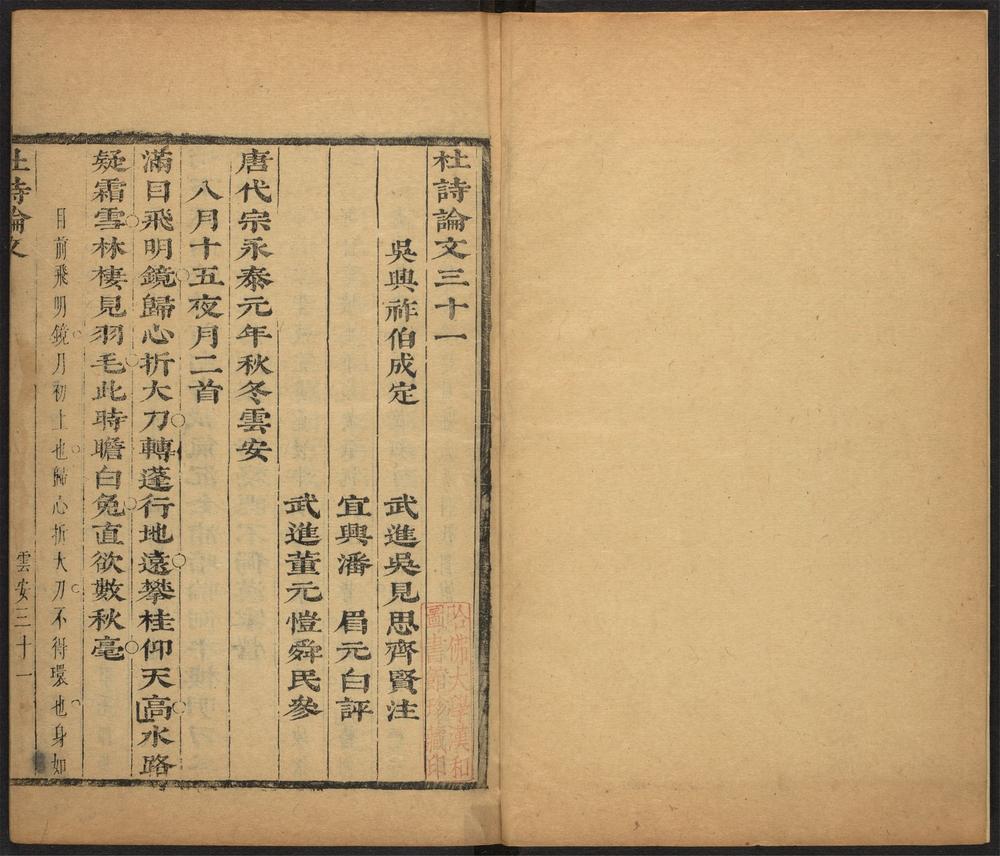 杜詩論文三十一
吳興祚伯成定 武進吳見思齊賢注
宜興潘 眉元白評
武進董元愷舜民參
唐代宗永泰元年秋冬雲安
八月十五夜月二首
滿目飛明鏡歸心折大刀轉蓬行地遠攀桂仰天高水路
疑霜雪林棲見羽毛此時瞻白兔直欲數秋毫
目前飛明鏡月初上也歸心折大刀不得環也身如
杜詩論文 雲安三十一
哈佛大學漢和
圖書館珍藏印